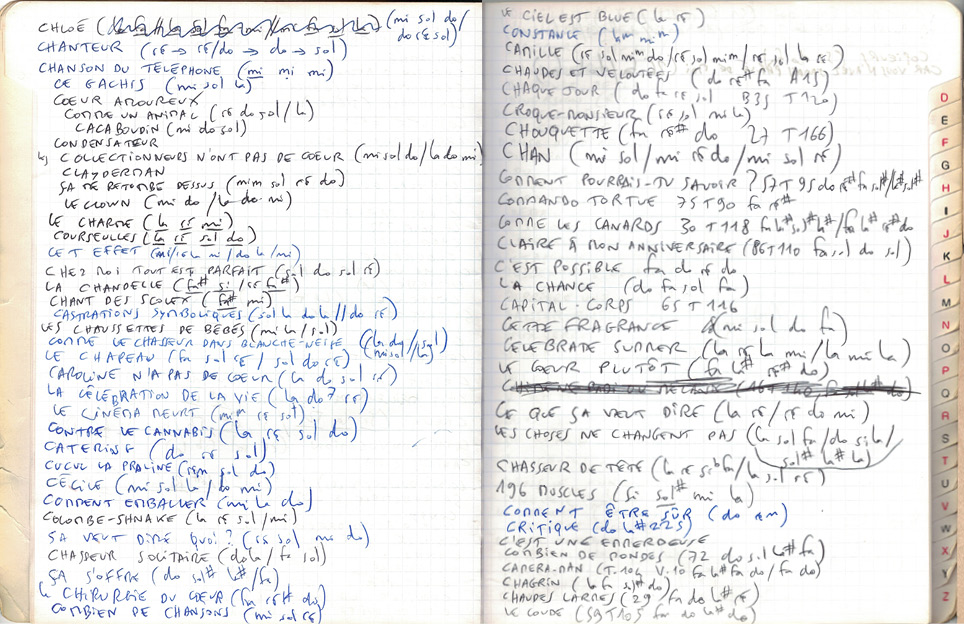 CHLOÉ (mi sol do/
do ré sol)
CHANTEUR (ré → ré/do → do → sol)
CHANSON DU TÉLÉPHONE (mi mi mi)
CE GÂCHIS (mi sol la)
CŒUR AMOUREUX
COMME UN ANIMAL (ré do sol/la)
CACABOUDIN (mi do sol)
CONDENSATEUR
COLLECTIONNEURS N'ONT PAS DE CŒUR (mi sol do/la do mi)
CLAYDERMAN
ÇA ME RETOMBE DESSUS (mim sol ré do)
LE CLOWN (mi do/la do mi)
LE CHARME (la ré mi)
COURSEULLES (la ré sol do)
CET EFFET (mi/ré la mi/do la/mi)
CHEZ MOI TOUT EST PARFAIT (sol do sol ré)
LA CHANDELLE (fa# si/ré fa#)
CHANT DES SCOLEX (fa# mi)
CASTRATIONS SYMBOLIQUES (sol la do la//do ré)
LES CHAUSSETTES DE BÉBÉS (mi la/sol)
COMME LE CHASSEUR DANS BLANCHE-NEIGE
LE CHAPEAU (fa sol ré/sol do ré)
CAROLINE N'A PAS DE CŒUR (la do sol ré)
LA CÉLÉBRATION DE LA VIE (la do7 ré)
LE CINÉMA MEURT (mim ré sol)
CONTRE LE CANNABIS (la ré sol do)
CATERINE (do ré sol)
CUCUL LA PRALINE (rém sol do)
CÉCILE (mi sol la/do mi)
COMMENT EMBALLER (mi la do)
COLOMBE-SHNAKE (la ré sol/mi)
ÇA VEUT DIRE QUOI? (ré sol mi do)
CHASSEUR SOLITAIRE (do la/fa sol)
ÇA S'OFFRE (do sol# la#/fa)
CHIRURGIE DU CŒUR (fa ré# do)
COMBIEN DE CHANSONS (mi sol ré)
LE CIEL EST BLUE (la ré)
CONSTANCE (lam mim)
CAMILLE (ré sol mim do/ré sol mim/ré sol la ré)
CHAUDES ET VELOUTÉES (do ré# fa A15)
CHAQUE JOUR (do fa ré sol B35 T120)
CROQUE-MONSIEUR (ré sol mi la)
CHOUQUETTE (fa ré# do 27 T166)
CHAN (mi sol/mi ré do/mi sol ré)
COMMENT POURRAIS-TU SAVOIR? 57 T95 do ré# fa sol#/la# sol#
COMMANDO TORTUE 75 T90 fa ré#
COMME LES CANARDS 30 T118 fa la# sol# la#/fa la# do
CLAIRE À MON ANNIVERSAIRE (86 T110 fa sol do sol)
C'EST POSSIBLE fa do ré do
LA CHANCE (do fa sol fa)
CAPITAL-CORPS 65 T116
CETTE FRAGRANCE (mi sol do fa)
CELEBRATE SUMMER (la ré la mi/la mi la)
LE CŒUR PLUTÔT (fa la# ré# do)
CE QUE ÇA VEUT DIRE (la ré/ré do mi)
LES CHOSES NE CHANGENT PAS (la sol fa/do si la/
sol# la# la)
CHASSEUR DE TÊTE (la ré sib fa/la sol ré)
196 MUSCLES (si sol# mi la)
COMMENT ÊTRE SÛR (do rém)
CRITIQUE (do la# 225)
C'EST UNE EMMERDEUSE
COMBIEN DE MONDES (72 do sol la# fa)
CAMERA-MAN (T.104 V.10 fa la# fa do/fa do)
CHAGRIN (la fa sol# do)
CHAUDES LARMES (29/fa do la# ré)
LE COUDE (59 T105 fa do la# do)
D
E
F
G
H
I
J
K
L
M
N
O
P
Q
R
S
T
U
V
W
X
Y
Z